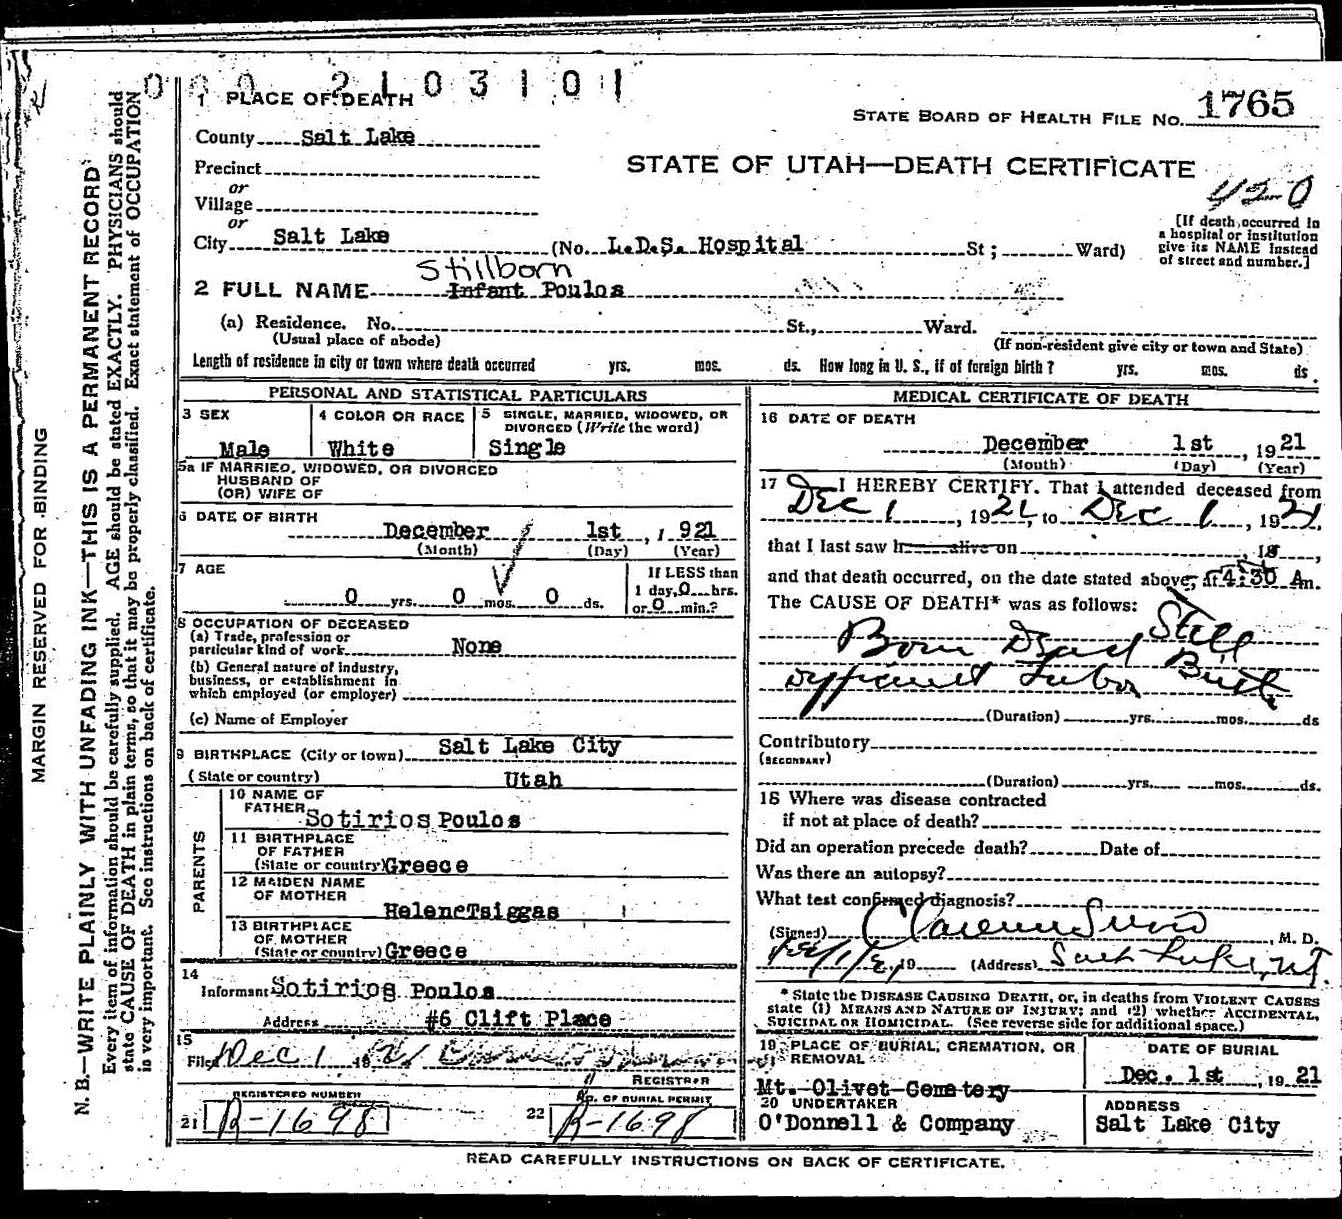 0 0 0 2 1 0 3 1 0 1
1 PLACE OF DEATH
STATE BOARD OF HEALTH FILE NO. 1765
County Salt Lake
Precinct
or
Village
or
City Salt Lake (No. L.D.S. Hospital St; Ward)
STATE OF UTAH—DEATH CERTIFICATE
420
[If death occurred in
a hospital or institution
give its NAME instead
of street and number.]
Stillborn
2 FULL NAME Infant Poulos
(a) Residence. No. St., Ward.
(Usual place of abode) (If non-resident give city or town and State)
Length of residence in city or town where death occurred yrs. mos. ds. How long in U. S., if of foreign birth? yrs. mos. ds.
PERSONAL AND STATISTICAL PARTICULARS
3 SEX
Male
4 COLOR OR RACE
White
5 SINGLE, MARRIED, WIDOWED, OR
DIVORCED (Write the word)
Single
5a IF MARRIED, WIDOWED, OR DIVORCED
HUSBAND OF
(OR) WIFE OF
6 DATE OF BIRTH
December 1st, 1921
(Month) (Day) (Year)
7 AGE
0 yrs. 0 mos. 0 ds.
If LESS than
1 day, 0 hrs.
or 0 min.?
8 OCCUPATION OF DECEASED
(a) Trade, profession or
particular kind of work None
(b) General nature of industry,
business, or establishment in
which employed (or employer)
(c) Name of Employer
9 BIRTHPLACE (City or town) Salt Lake City
(State or country) Utah
PARENTS
10 NAME OF
FATHER Sotirios Poulos
11 BIRTHPLACE
OF FATHER
(State or country) Greece
12 MAIDEN NAME
OF MOTHER
Helene Tsiggas
13 BIRTHPLACE
OF MOTHER
(State or country) Greece
14
Informant Sotirios Poulos
Address #6 Clift Place
15
Filed Dec 1 1921
REGISTRAR
REGISTERED NUMBER
21 R-1698
No. OF BURIAL PERMIT
22 R-1698
MEDICAL CERTIFICATE OF DEATH
16 DATE OF DEATH
December 1st, 1921
(Month) (Day) (Year)
17 I HEREBY CERTIFY. That I attended deceased from
Dec 1, 1921, to Dec 1, 1921,
that I last saw h alive on , 19 ,
and that death occurred, on the date stated above, at 4:30 Am.
The CAUSE OF DEATH* was as follows:
Born Dead Still
Labor Birth
(Duration) yrs. mos. ds
Contributory
(SECONDARY)
(Duration) yrs. mos. ds.
18 Where was disease contracted
if not at place of death?
Did an operation precede death? Date of
Was there an autopsy?
What test confirmed diagnosis?
(Signed) , M. D.
12/1/21, 19 (Address) Salt Lake, Ut.
* State the DISEASE CAUSING DEATH, or, in deaths from VIOLENT CAUSES
state (1) MEANS AND NATURE OF INJURY; and (2) whether ACCIDENTAL,
SUICIDAL OR HOMICIDAL. (See reverse side for additional space.)
19 PLACE OF BURIAL, CREMATION, OR
REMOVAL
Mt. Olivet Cemetery
DATE OF BURIAL
Dec. 1st, 1921
20 UNDERTAKER
O'Donnell & Company
ADDRESS
Salt Lake City
READ CAREFULLY INSTRUCTIONS ON BACK OF CERTIFICATE.
MARGIN RESERVED FOR BINDING
N. B.—WRITE PLAINLY WITH UNFADING INK—THIS IS A PERMANENT RECORD
Every item of information should be carefully supplied. AGE should be stated EXACTLY. PHYSICIANS should
state CAUSE OF DEATH in plain terms, so that it may be properly classified. Exact statement of OCCUPATION
is very important. See instructions on back of certificate.